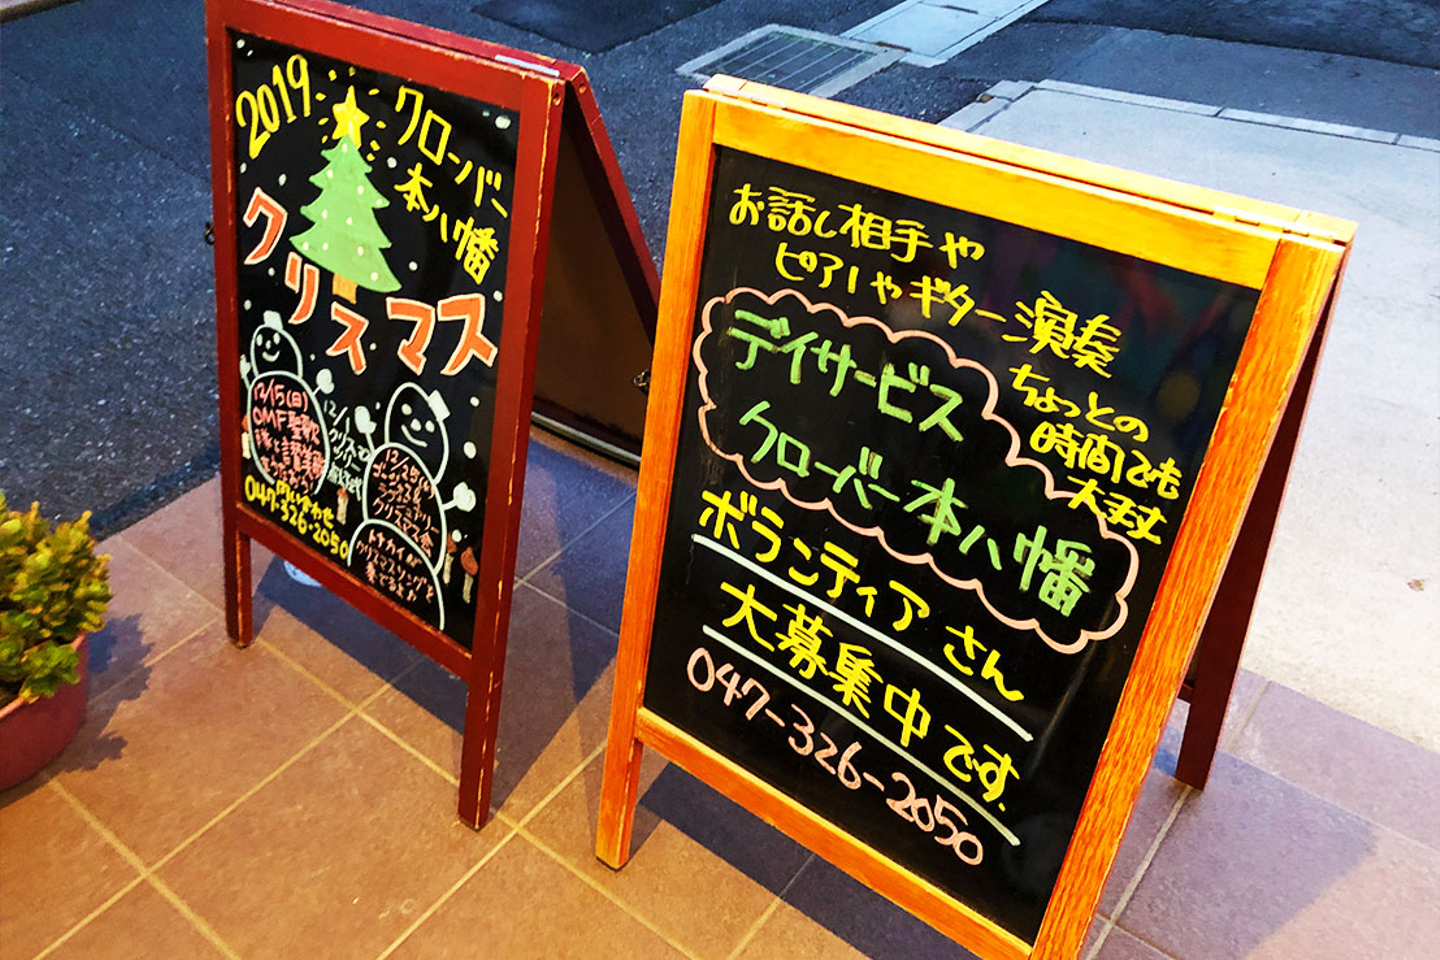 2019
クローバー
本八幡
クリスマス
12/15(日)
OMF聖歌
問い合わせ
047-326-2050
12/25(水)
クリスマス会
クリスマスソングを
お話し相手や
ピアノやギター演奏
ちょっとの
時間でも
大丈夫
デイサービス
クローバー本八幡
ボランティアさん
大募集中です.
047-326-2050